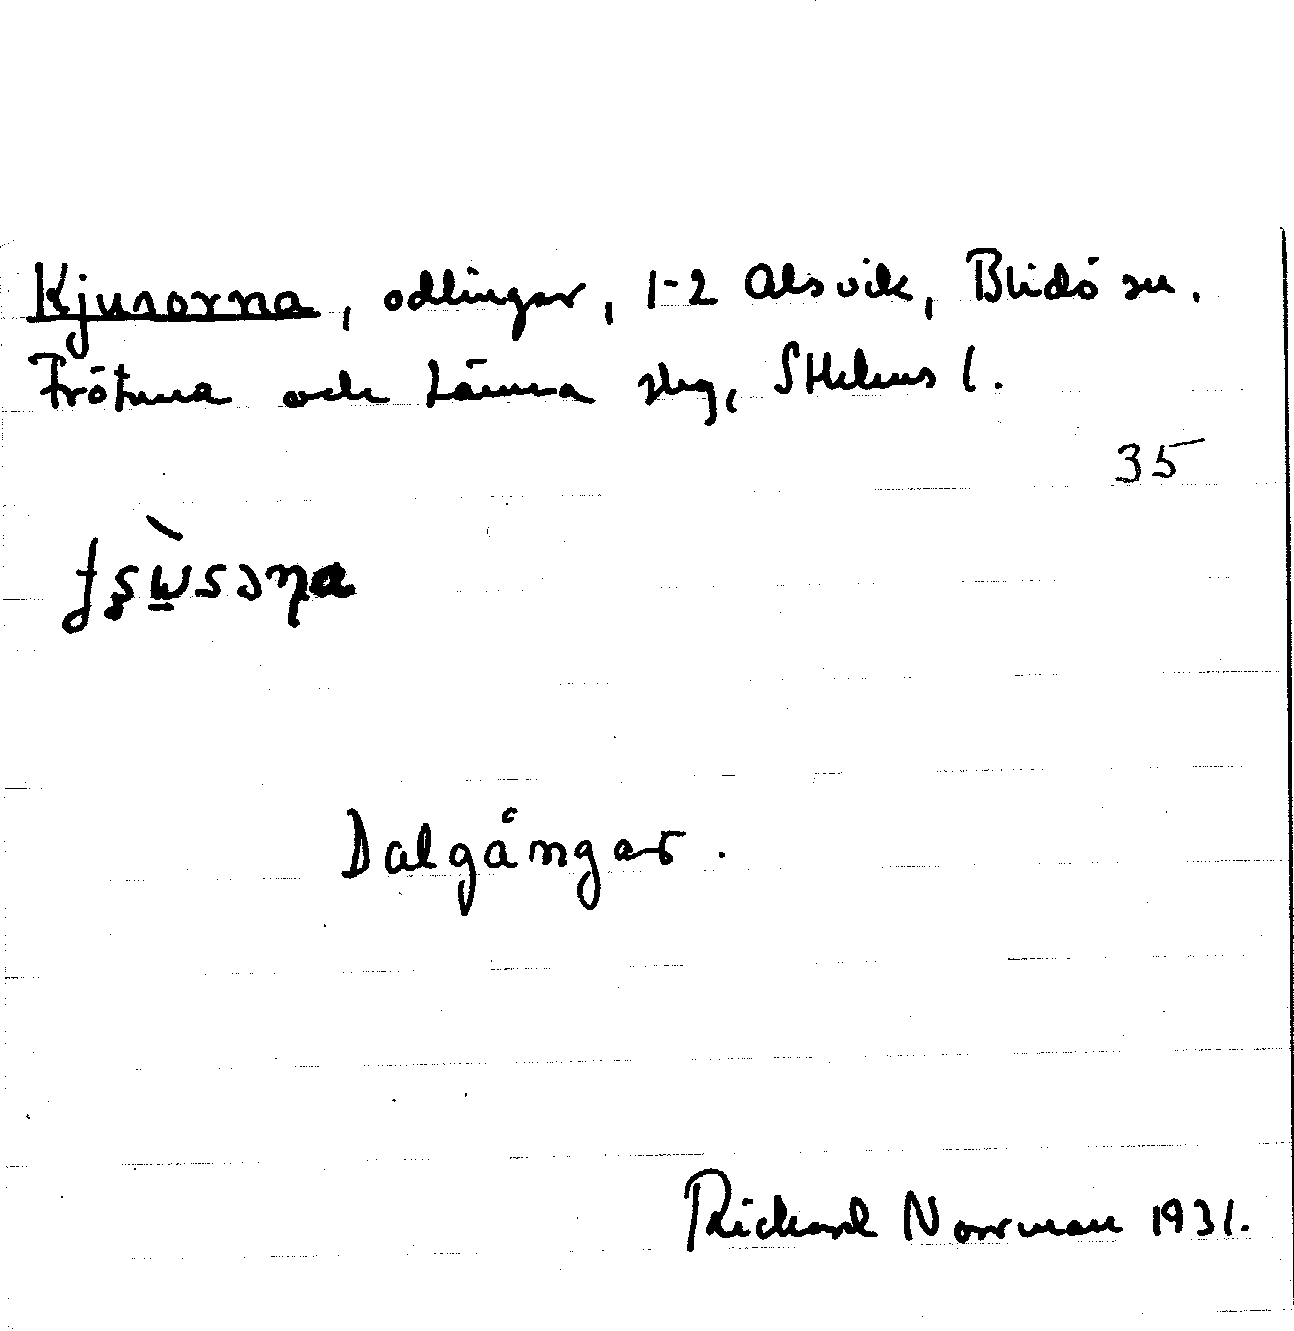 Kjusorna, odlingar, 1-2 Alsvik, Blidö sn.
Frötuna och Länna slg, Sthlms l.
35
Dalgångar.
Richard Norrman 1931.